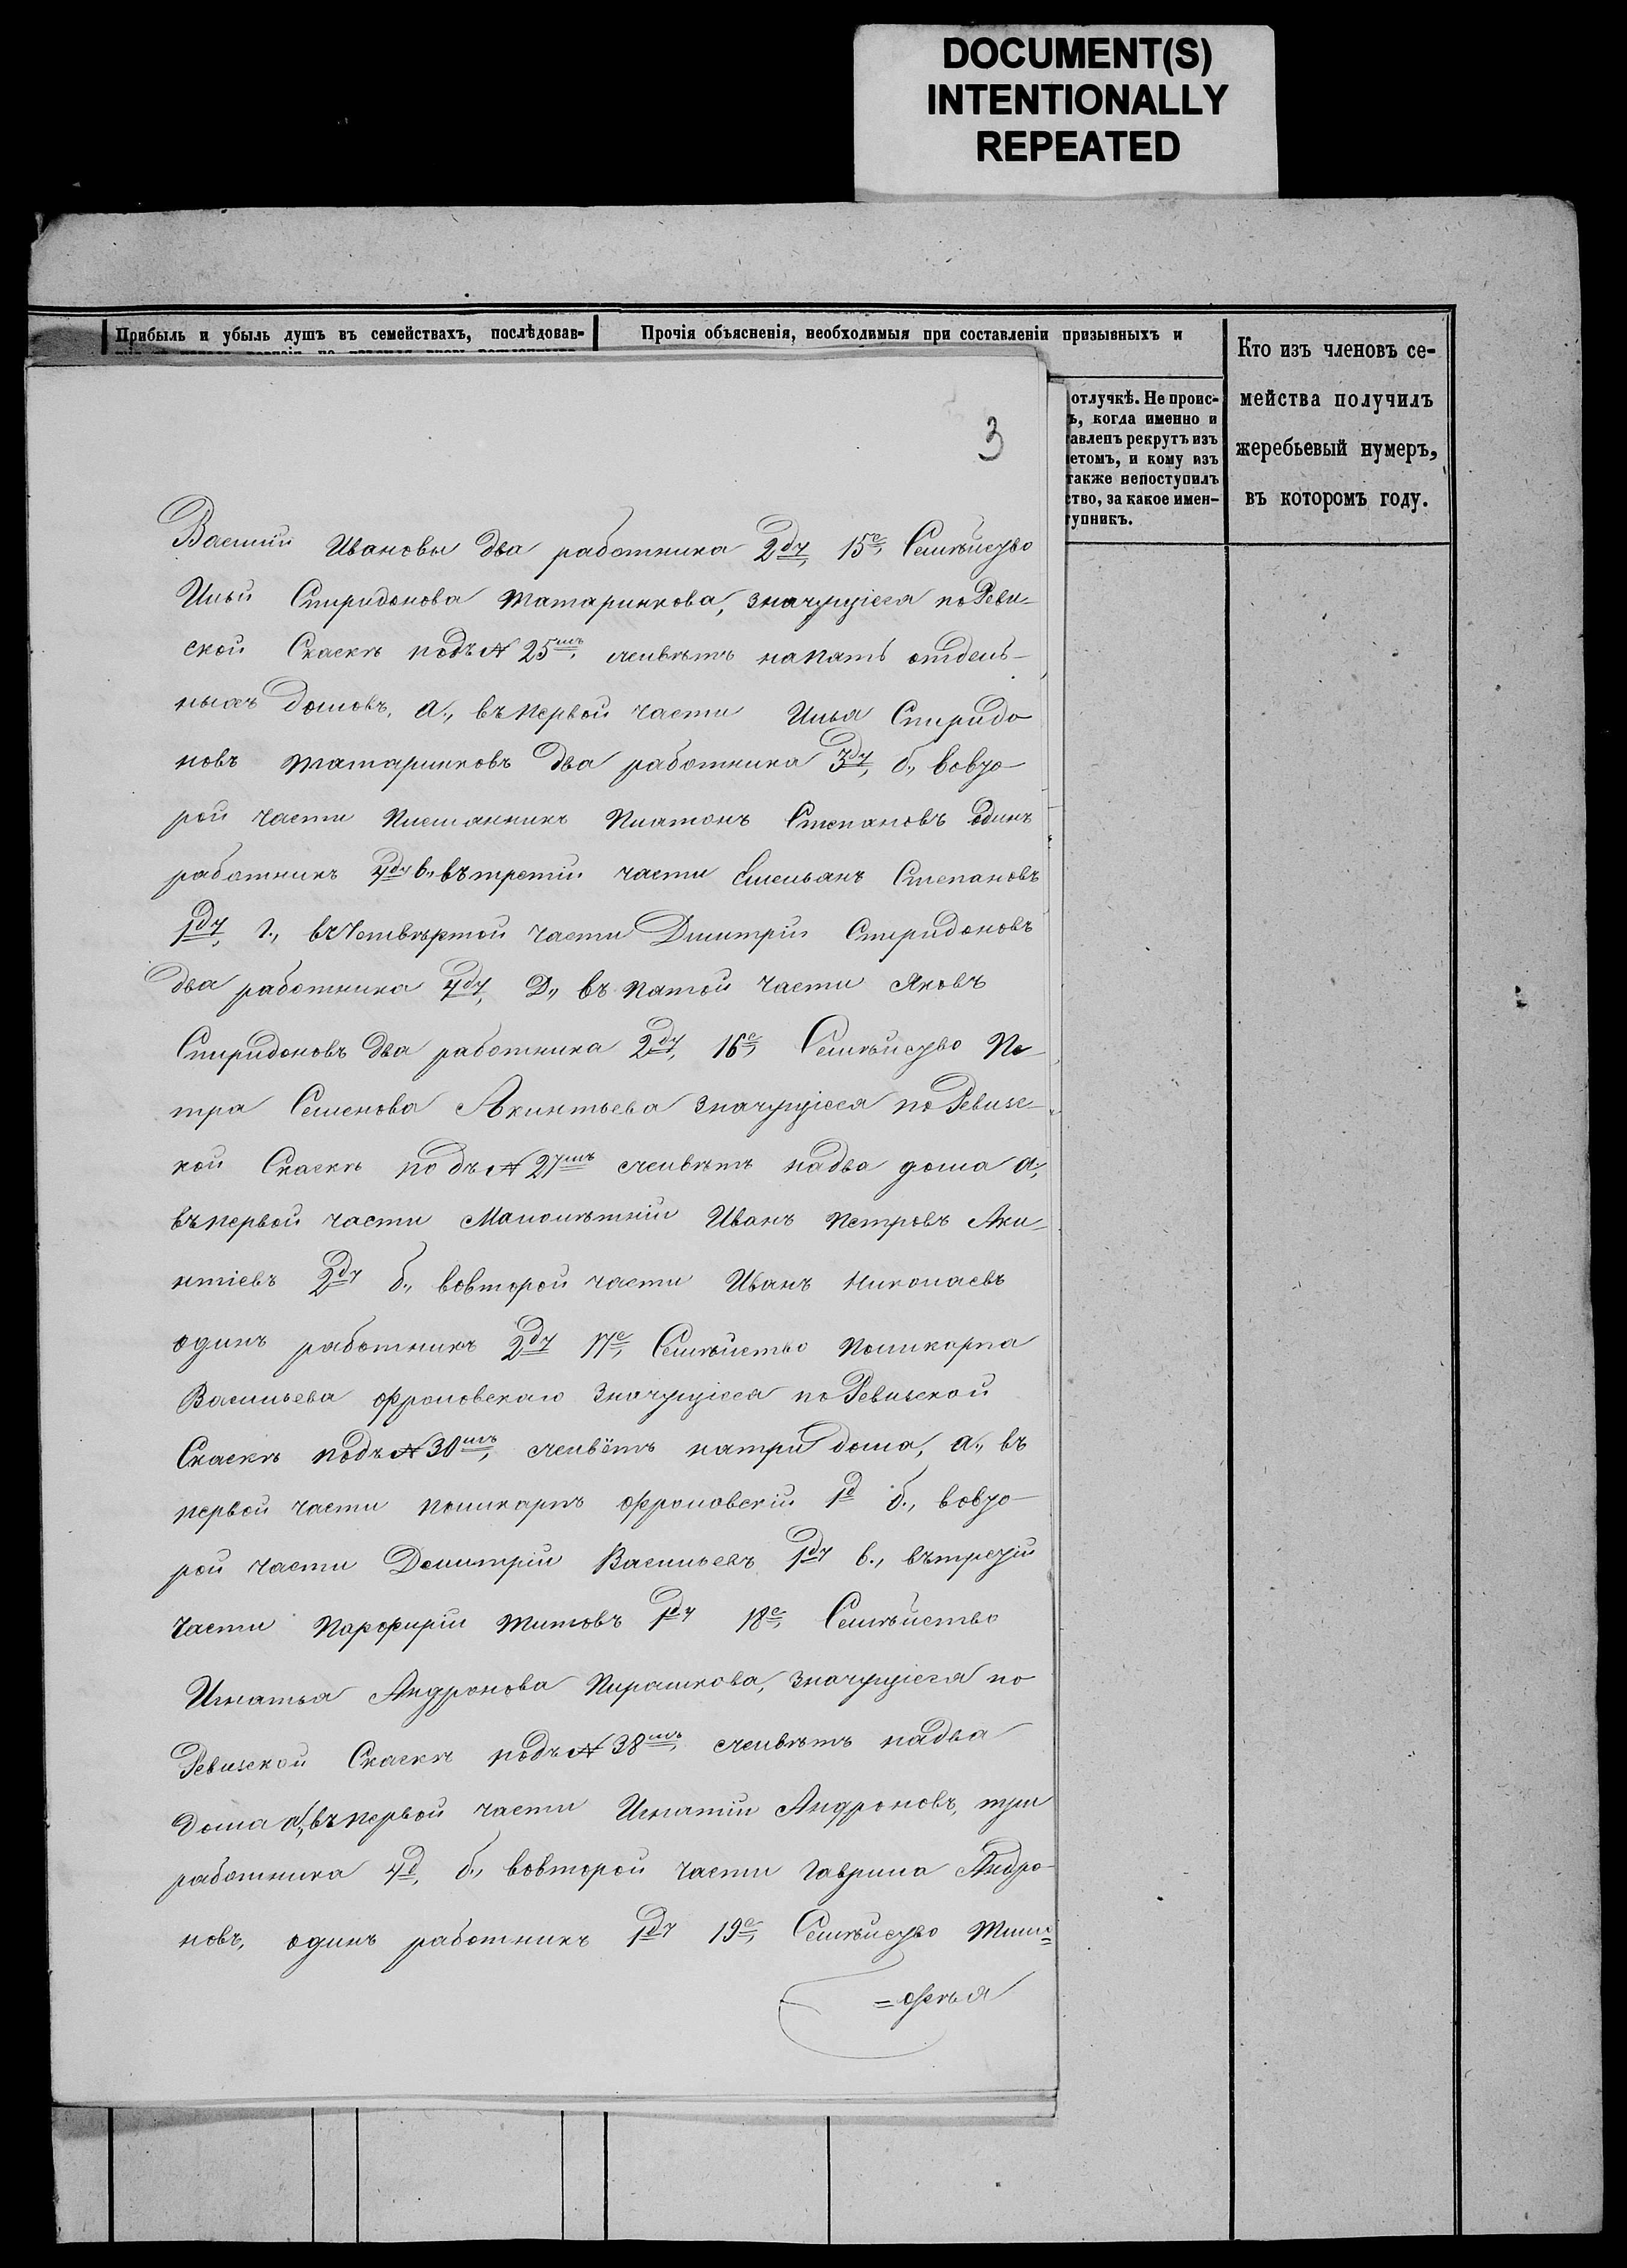 DOCUMENT(S)
INTENTIONALLY
REPEATED
Прибыль и убыль душъ въ семействахъ, послѣдовав-
Прочія объясненія, необходимыя при составленіи призывныхъ и
отлучкѣ. Не проис-
ъ, когда именно и
тавленъ рекрутъ изъ
четомъ, и кому изъ
также непоступилъ
ство, за какое имен-
тупникъ.
Кто изъ членовъ се-
мейства получилъ
жеребьевый нумеръ,
въ которомъ году.
3
Василий Ивановы два работника 2ду, 15е, Семѣйство
Ильи Спиридонова Татаринкова, значущіеся по Реви-
ской Скаскѣ подъ № 25мъ, живѣтъ на пять отдель-
ныхъ домовъ, а., въ первой части Илья Спиридо
новъ Татаринковъ два работника 3ду, б., вовто-
рой части Племянникъ Платонъ Степановъ один
работникъ 4ду в., въ третій части Емельянъ Степановъ
1ду, г., въ Четвѣртой части Дмитрій Спиридоновъ
два работника 4ду, Д., въ пятой части Яковъ
Спиридоновъ два работника 2ду, 16е, Семѣйство Пе-
тра Семенова Акинтьева значущіеся по Ревизс-
кой Скаскѣ подъ № 27мъ живѣтъ надва дома а,
въ первой части Малолѣтній Иванъ Петровъ Аки-
нтіевъ 2ду б., вовторой части Иванъ Николаевъ
одинъ работникъ 2ду 17е, Семѣйство Поликарпа
Васильева Фроловскаго Значущіеся по Ревизской
Скаскѣ подъ № 30мъ, живётъ натри дома, а., въ
первой части поликарпъ Фроловскій 1д б., вовто-
рой части Демитрій Васильевъ 1ду в., вътретій
части Парфирій Титовъ 1ду 18е, Семѣйство
Игнатья Андронова Пирашкова, значущіеся по
Ревизской Скаскѣ подъ № 38мъ, живѣтъ надва
дома а, въ первой части Игнатій Андроновъ, три
работника 4д, б., вовторой части Гаврила Андро-
новъ, одинъ работникъ 1ду 19е, Семѣйство Тимо=
=фѣья